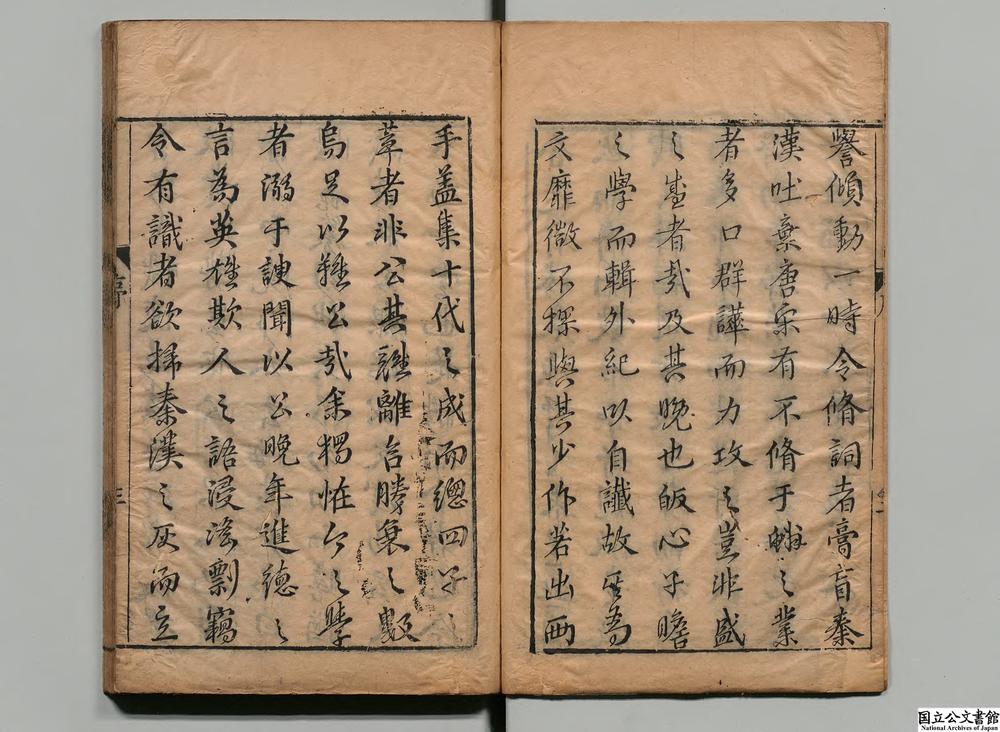 譽傾動一時令脩詞者膏肓秦
漢吐棄唐宋有不脩于鱗之業
者多口群譁而力攻之豈非盛
之盛者哉及其晚也皈心子瞻
之學而輯外紀以自讖故其為
文靡微不探與其少作若出兩
手蓋集十代之成而總四子之
葦者非公其誰離合勝棄之數
烏足以難公哉余獨恠今之學
者溺于諛聞以公晚年進德之
言為英雄欺人之語浸淫剽竊
令有識者欲掃秦漢之灰而立
序
三
国立公文書館
National Archives of Japan